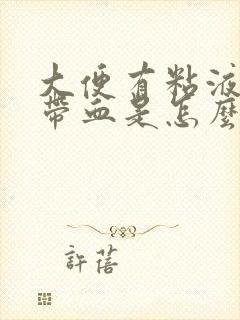 大便有粘液
帶血是怎麼
許蓓